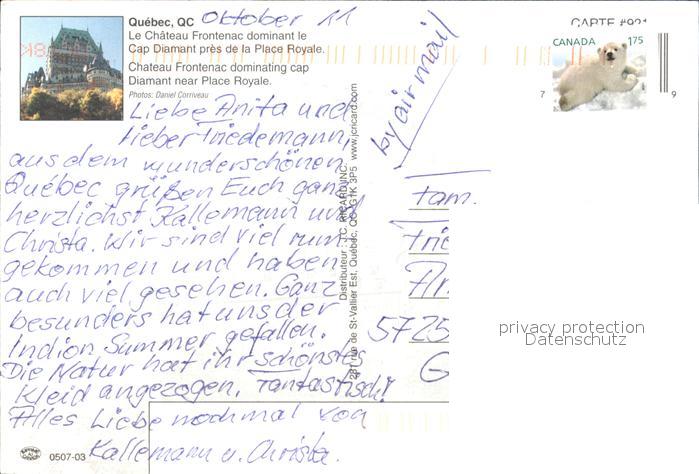 Québec, QC Oktober 11
Le Château Frontenac dominant le
Cap Diamant près de la Place Royale.
Chateau Frontenac dominating cap
Diamant near Place Royale.
Photos: Daniel Corriveau
CARTE #921
CANADA 175
7 9
Liebe Anita und
lieber Friedemann,
aus dem wunderschönen
Québec grüßen Euch ganz
herzlichst Kallemann und
Christa. Wir sind viel rum
gekommen und haben
auch viel gesehen. Ganz
besunders hat uns der
Indion Summer gefallen.
Die Natur hat ihr schönstes
Kleid angezogen, Tantastisch!
Alles Liebe nochmal von
Kallemann u. Christa.
0507-03
Distributeur: J.C. RICARD INC.
281 rue de St-Vallier Est, Québec, QC G1K 3P5 www.jcricard.com
by air mail
Fam.
Frie
An
5725
G
privacy protection
Datenschutz